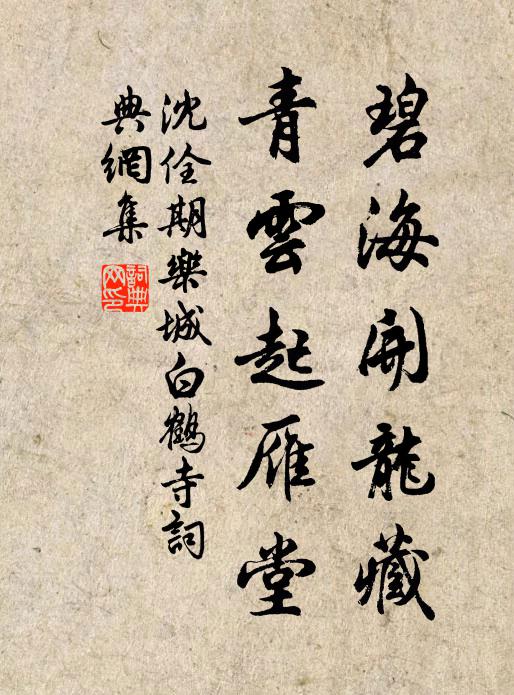 碧海開龍藏
青雲起雁堂
沈佺期樂城白鶴寺詞
典網集
詞典
網印